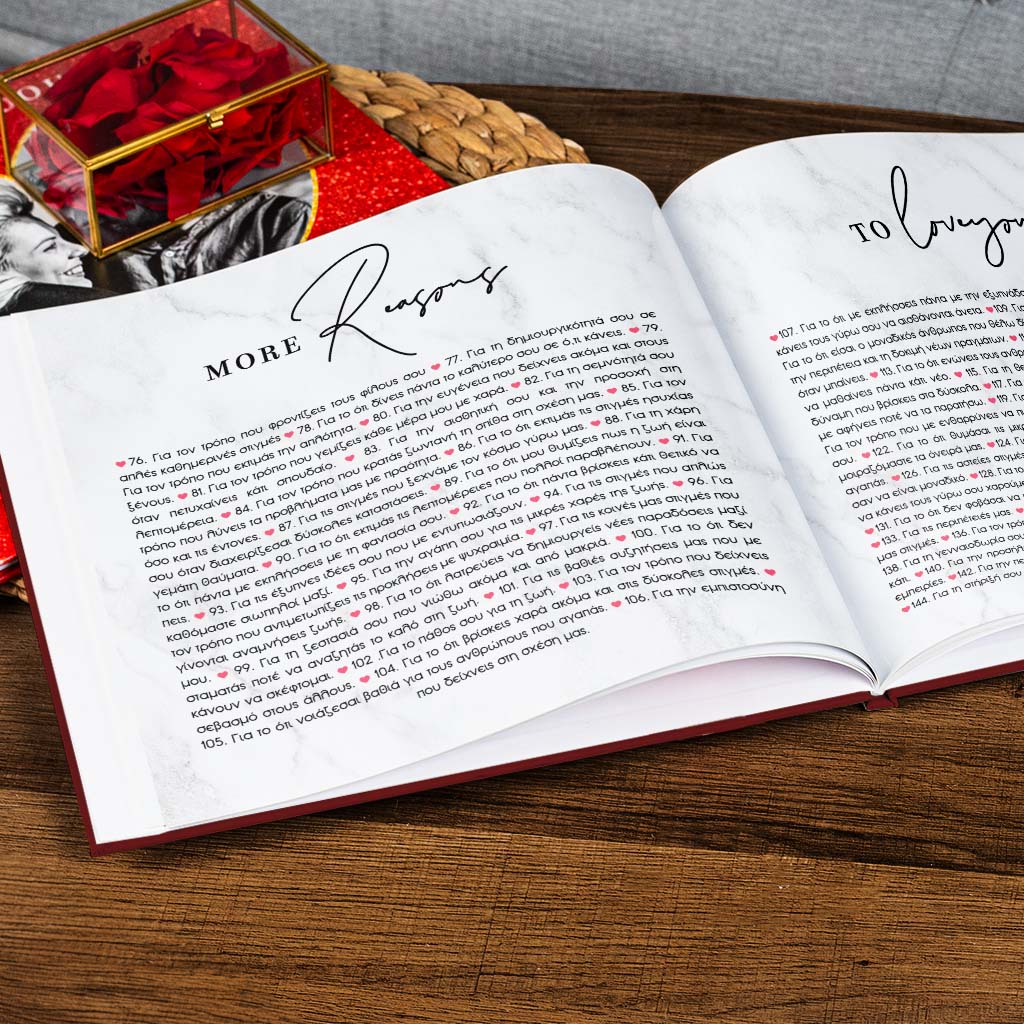 MORE Reasons
♥76. Για τον τρόπο που φροντίζεις τους φίλους σου ♥ 77. Για τη δημιουργικότητά σου σε
απλές καθημερινές στιγμές ♥ 78. Για το ότι δίνεις πάντα το καλύτερο σου σε ό,τι κάνεις. ♥ 79.
Για τον τρόπο που εκτιμάς την απλότητα. ♥ 80. Για την ευγένεια που δείχνεις ακόμα και στους
ξένους. ♥ 81. Για τον τρόπο που γεμίζεις κάθε μέρα μου με χαρά. ♥ 82. Για τη σεμνότητά σου
όταν πετυχαίνεις κάτι σπουδαίο. ♥ 83. Για την αισθητική σου και την προσοχή στη
λεπτομέρεια. ♥ 84. Για τον τρόπο που κρατάς ζωντανή τη σπίθα στη σχέση μας. ♥ 85. Για τον
τρόπο που λύνεις τα προβλήματα μας με πραότητα. ♥ 86. Για το ότι εκτιμάς τις στιγμές ησυχίας
όσο και τις έντονες. ♥ 87. Για τις στιγμές που ξεχνάμε τον κόσμο γύρω μας. ♥ 88. Για τη χάρη
σου όταν διαχειρίζεσαι δύσκολες καταστάσεις. ♥ 89. Για το ότι μου θυμίζεις πως η ζωή είναι
γεμάτη θαύματα. ♥ 90. Για το ότι εκτιμάς τις λεπτομέρειες που πολλοί παραβλέπουν. ♥ 91. Για
το ότι πάντα με εκπλήσσεις με τη φαντασία σου. ♥ 92. Για το ότι πάντα βρίσκεις κάτι θετικό να
πεις. ♥ 93. Για τις έξυπνες ιδέες σου που με εντυπωσιάζουν. ♥ 94. Για τις στιγμές που απλώς
καθόμαστε σιωπηλοί μαζί. ♥ 95. Για την αγάπη σου για τις μικρές χαρές της ζωής. ♥ 96. Για
τον τρόπο που αντιμετωπίζεις τις προκλήσεις με ψυχραιμία. ♥ 97. Για τις κοινές μας στιγμές που
γίνονται αναμνήσεις ζωής. ♥ 98. Για το ότι λατρεύεις να δημιουργείς νέες παραδόσεις μαζί
μου. ♥ 99. Για τη ζεστασιά σου που νιώθω ακόμα και από μακριά. ♥ 100. Για το ότι δεν
σταματάς ποτέ να αναζητάς το καλό στη ζωή. ♥ 101. Για τις βαθιές συζητήσεις μας που με
κάνουν να σκέφτομαι. ♥ 102. Για το πάθος σου για τη ζωή. ♥ 103. Για τον τρόπο που δείχνεις
σεβασμό στους άλλους. ♥ 104. Για το ότι βρίσκεις χαρά ακόμα και στις δύσκολες στιγμές. ♥
105. Για το ότι νοιάζεσαι βαθιά για τους ανθρώπους που αγαπάς. ♥ 106. Για την εμπιστοσύνη
που δείχνεις στη σχέση μας.
TO love you
♥107. Για το ότι με εκπλήσσεις πάντα με την
κάνεις τους γύρω σου να αισθάνονται άνετα. ♥109.
Για το ότι είσαι ο μοναδικός άνθρωπος που θέλω
την περιπέτεια και τη δοκιμή νέων πραγμάτων. ♥
όταν μπαίνεις. ♥ 113. Για το ότι ενώνεις τους
να μαθαίνεις πάντα κάτι νέο. ♥ 115. Για τη
δύναμη που βρίσκεις στα δύσκολα. ♥117.
με αφήνεις ποτέ να τα παρατήσω. ♥119.
Για τον τρόπο που με ενθαρρύνεις να
σου. ♥122. Για το ότι θυμάσαι τις
μοιραζόμαστε τα όνειρά μας. ♥124.
αγαπάς ♥126. Για τις αστείες
σαν να είναι μοναδικό. ♥128.
να κάνεις τους γύρω σου
♥131. Για το ότι δεν φοβάσαι να
♥133. Για τις περιπέτειές μας
μας στιγμές. ♥ 136. Για τον
138. Για τη γενναιοδωρία σου
κάτι. ♥140. Για την
εμπειρίες. ♥142. Για την
♥144. Για τη στήριξή σου